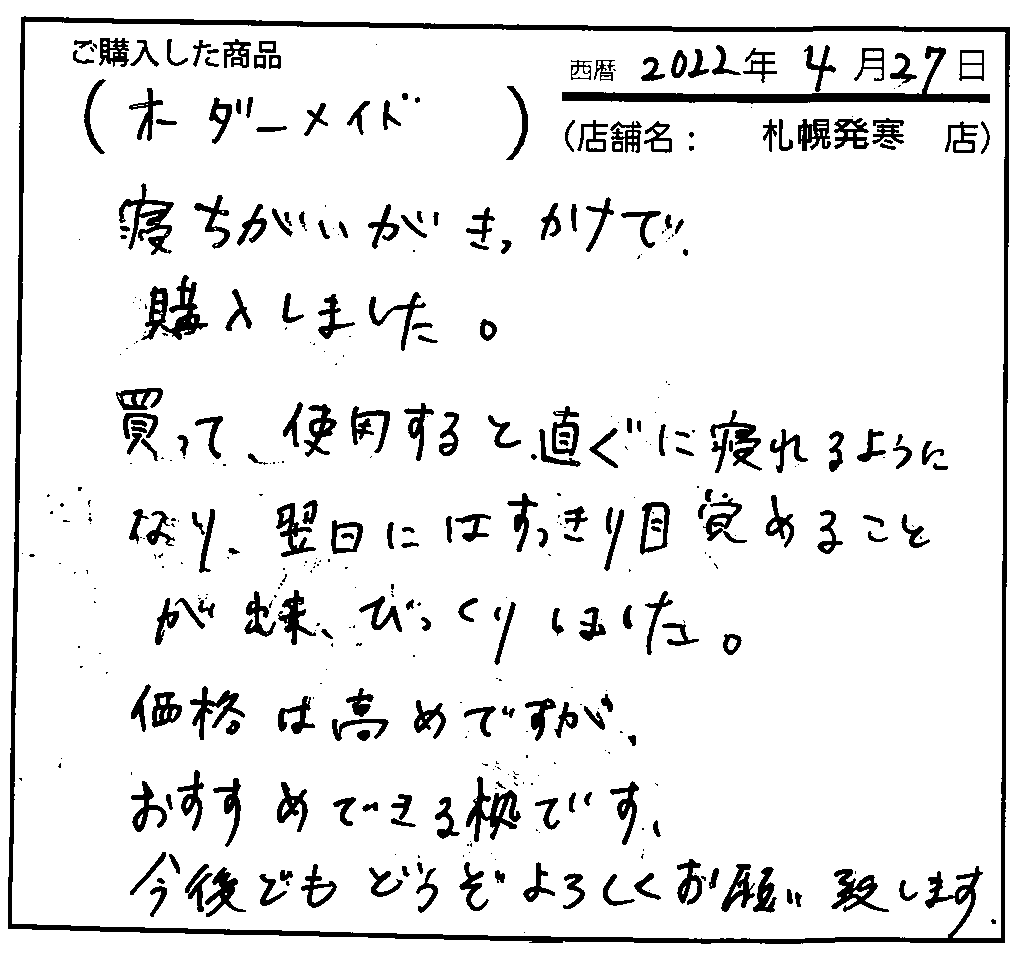 ご購入した商品
西暦 2022年 4月27日
(オーダーメイド)
(店舗名: 札幌発寒 店)
寝ちがいがきっかけで、
購入しました。
買って、使用すると、直ぐに寝れるように
なり、翌日にはすっきり目覚めること
が出来、びっくりしました。
価格は高めですが、
おすすめできる枕です、
今後でもどうぞよろしくお願い致します。